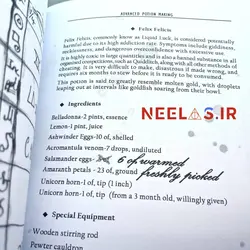 ADVANCED POTION MAKING
Felix Felicis
Felix Felicis, commonly know as Liquid Luck, is considered potentially
harmful due to its high addiction rate. Symptoms include giddiness,
recklessness, and dangerous overconfidence with extensive use.
It is highly toxic in large quantities and is also a banned substance in all
organised competitions, such as Quidditch, along with all other methods of
cheating. It is very difficult to make, disastrous if made wrong, and
requires six months to stew before it is ready to be consumed.
This potion is said to greatly resemble molten gold, with droplets
leaping out at intervals like goldfish soaring from their bowl.
NEELAS.IR
Ingredients
Belladonna-2 pints, essence
Lemon-1 pint, juice
Ashwinder Eggs-10 of, shelled
Acromantula venom-7 drops, undiluted
Salamander eggs- 6 of warmed
Amaranth petals - 23 of, ground freshly picked
Unicorn horn-1 of, tip (1 inch)
Unicorn horn-1 of, tip (from a 3 month old, willingly given)
Special Equipment
Wooden stirring rod
Pewter cauldron